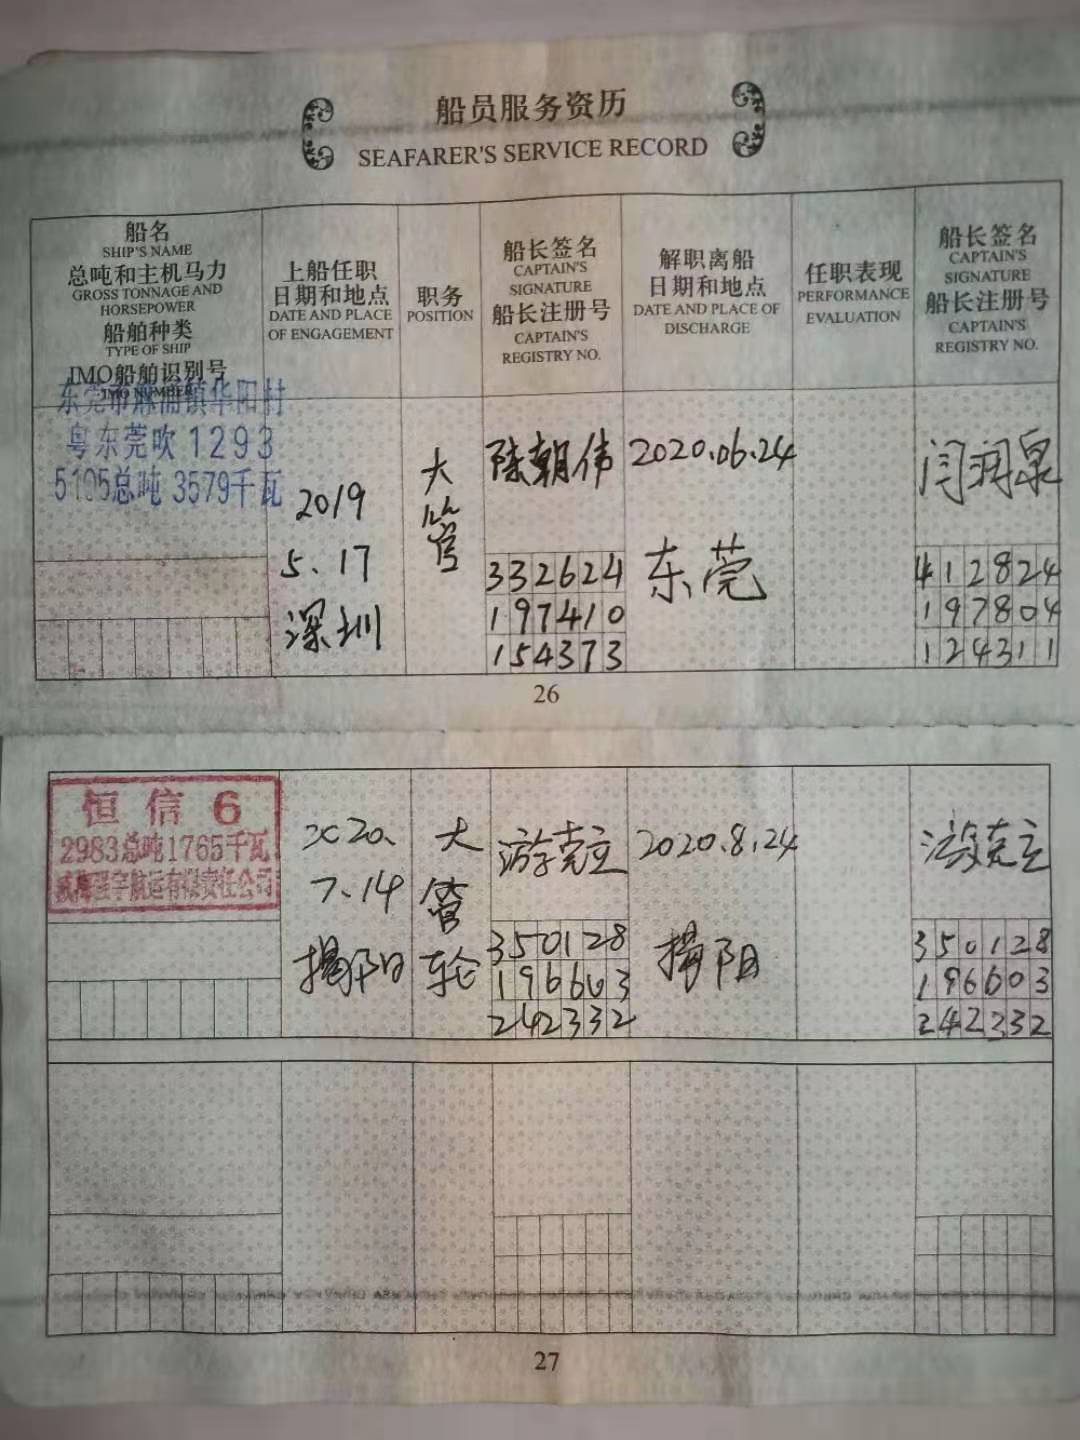 船员服务资历
SEAFARER'S SERVICE RECORD
船名
SHIP'S NAME
总吨和主机马力
GROSS TONNAGE AND
HORSEPOWER
船舶种类
TYPE OF SHIP
IMO船舶识别号
IMO NUMBER
上船任职
日期和地点
DATE AND PLACE
OF ENGAGEMENT
职务
POSITION
船长签名
CAPTAIN'S
SIGNATURE
船长注册号
CAPTAIN'S
REGISTRY NO.
解职离船
日期和地点
DATE AND PLACE OF
DISCHARGE
任职表现
PERFORMANCE
EVALUATION
船长签名
CAPTAIN'S
SIGNATURE
船长注册号
CAPTAIN'S
REGISTRY NO.
东莞市麻涌镇华阳村
粤东莞吹1293
总吨 3579千瓦
2019
5.17
深圳
大
管
陈朝伟
332624
197410
154373
2020.06.24
东莞
闫润泉
412824
197804
124311
26
恒信6
2983总吨1765千瓦
航运有限责任公司
20.
7.14
揭阳
大
管
轮
游克立
350128
196603
242332
2020.8.24
揭阳
游克立
350128
196603
242332
27